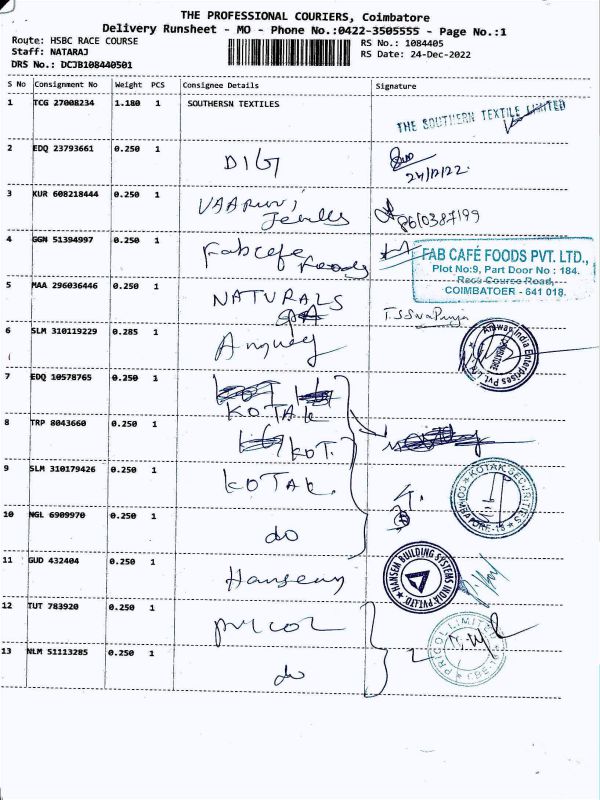 THE PROFESSIONAL COURIERS, Coimbatore
Delivery Runsheet - MO - Phone No.:0422-3505555 - Page No.:1
Route: HSBC RACE COURSE
RS No.: 1084405
Staff: NATARAJ
RS Date: 24-Dec-2022
DRS No.: DCJB108440501
S No Consignment No Weight PCS Consignee Details Signature
1 TCG 27008234 1.180 1 SOUTHERSN TEXTILES
THE SOUTHERN TEXTILE LIMITED
2 EDQ 23793661 0.250 1 DIG
24/12/22
3 KUR 608218444 0.250 1
Jewells 8610387199
4 GGN 51394997 0.250 1 Fabcafe Foods
FAB CAFÉ FOODS PVT. LTD.,
Plot No:9, Part Door No : 184.
Race Course Road,
COIMBATOER - 641 018.
5 MAA 296036446 0.250 1 NATURALS
6 SLM 310119229 0.285 1 Amway
Amway India Enterprises Pvt. Ltd.
COIMBATORE
7 EDQ 10578765 0.250 1 KOTAK
8 TRP 8043660 0.250 1 KOT.
9 SLM 310179426 0.250 1 KOTAK.
KOTAK SECURITIES
COIMBATORE-18
4.
10 NGL 6909970 0.250 1 do
11 GUD 432404 0.250 1 Hansen
HANSEN BUILDING SYSTEMS INDIA PVT LTD
12 TUT 783920 0.250 1 pricol
PRICOL LIMITED
CBE-18
13 NLM 51113285 0.250 1 do
2